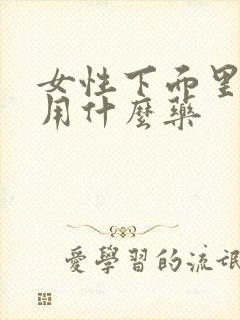 女性下面里
用什麼藥
愛學習的流氓